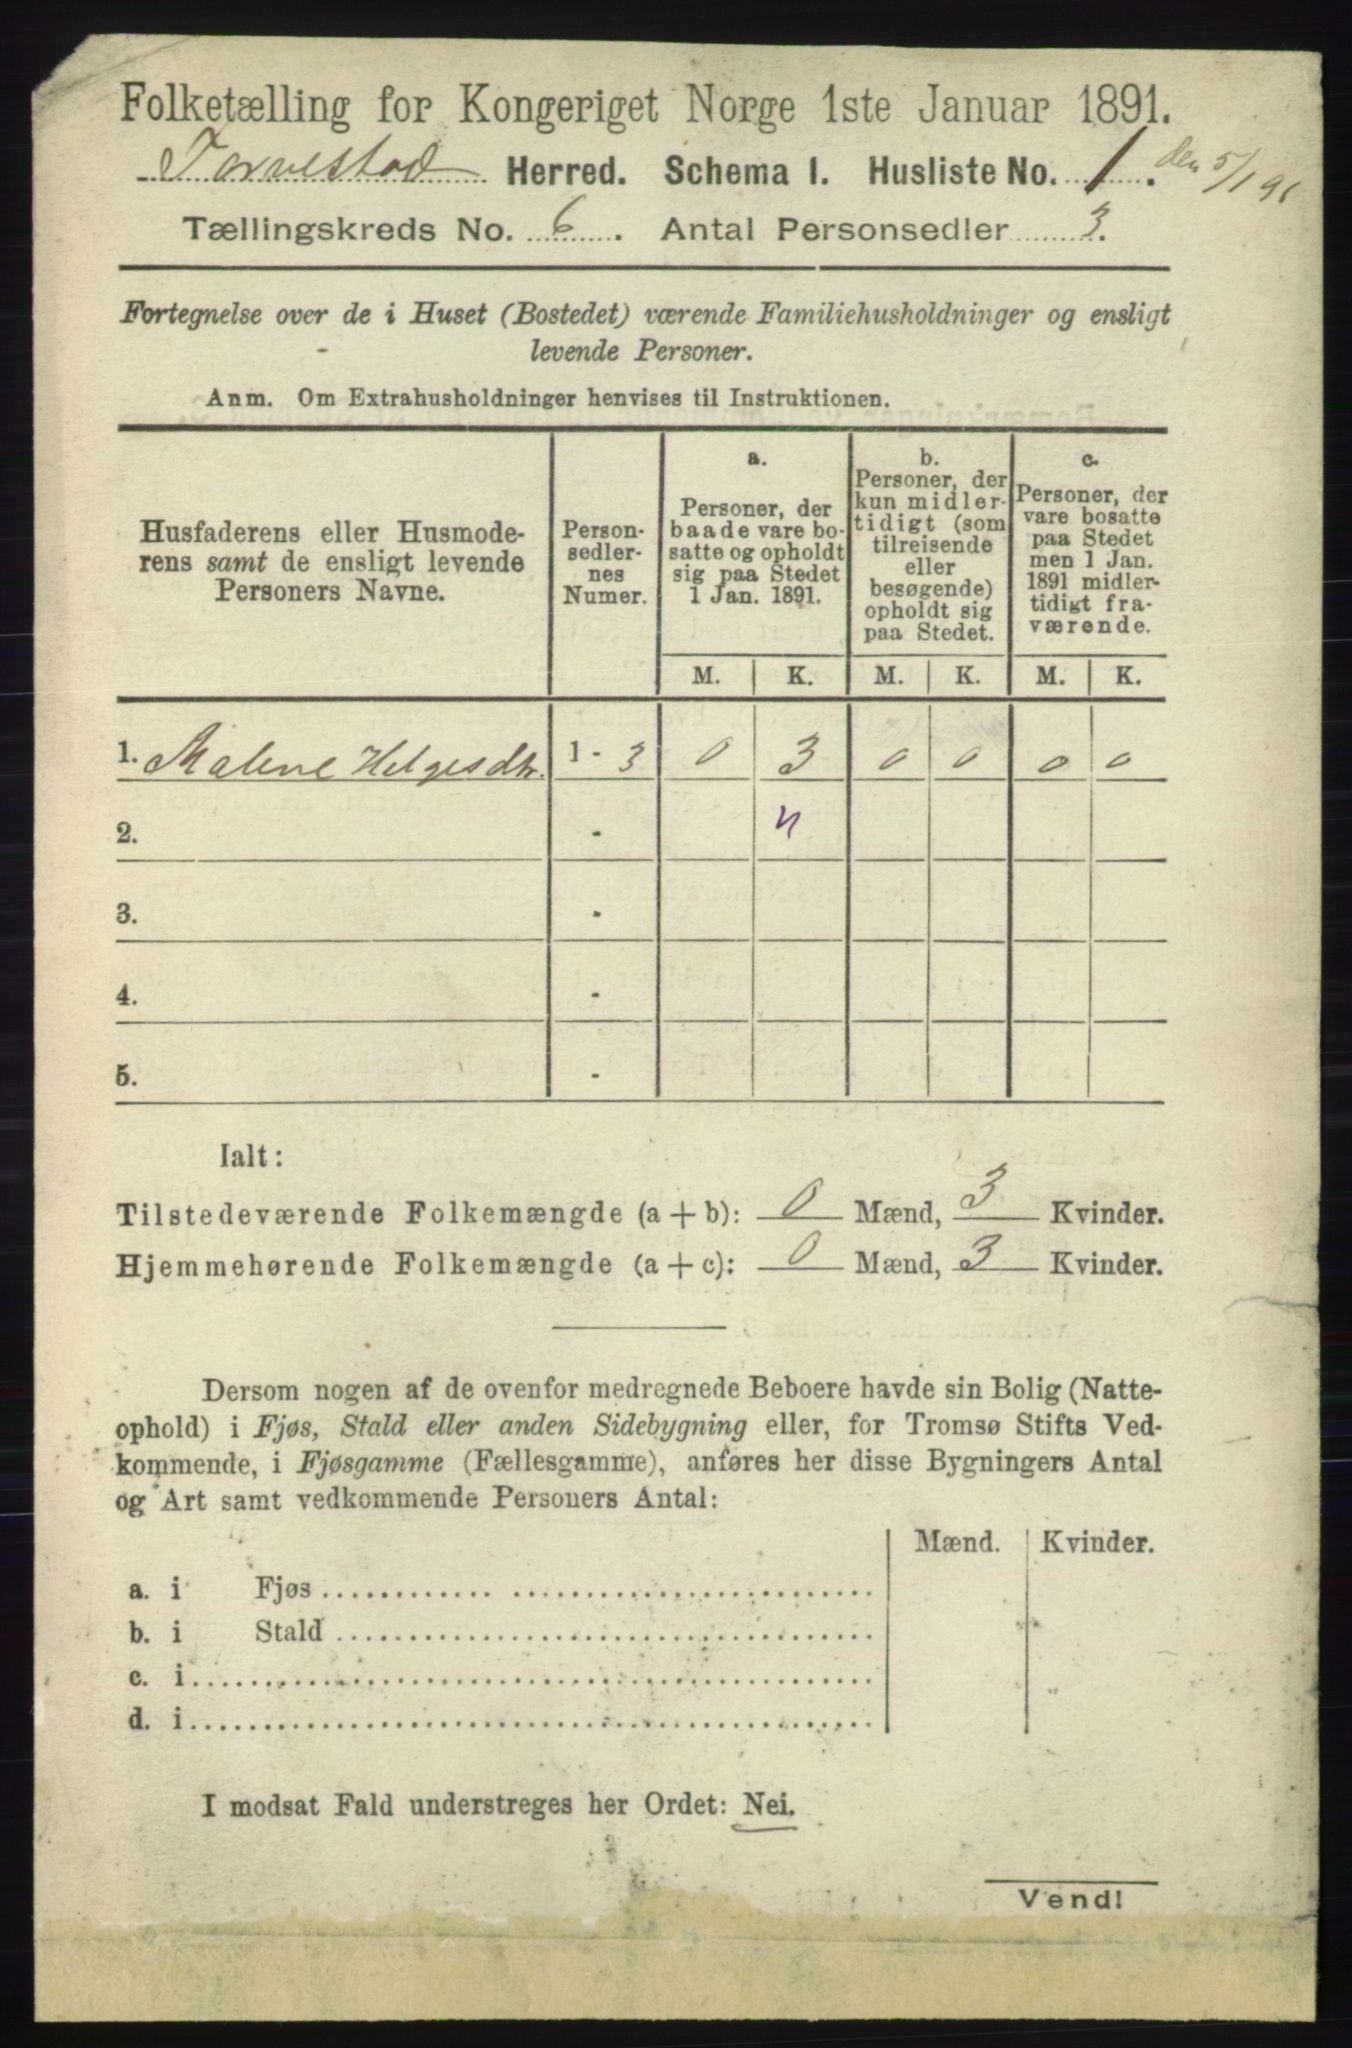 Folketælling for Kongeriget Norge 1ste Januar 1891.
Torvestad Herred. Schema I. Husliste No. 1. den 5/1 91
Tællingskreds No. 6. Antal Personsedler 3.
Fortegnelse over de i Huset (Bostedet) værende Familiehusholdninger og ensligt
levende Personer.
Anm. Om Extrahusholdninger henvises til Instruktionen.
Husfaderens eller Husmode-
rens samt de ensligt levende
Personers Navne.
Person-
sedler-
nes
Numer.
a.
Personer, der
baade vare bo-
satte og opholdt
sig paa Stedet
1 Jan. 1891.
b.
Personer, der
kun midler-
tidigt (som
tilreisende
eller
besøgende)
opholdt sig
paa Stedet.
c.
Personer, der
vare bosatte
paa Stedet
men 1 Jan.
1891 midler-
tidigt fra-
værende.
M. K. M. K. M. K.
1. Malene Helgesdtr. 1 - 3 0 3 0 0 0 0
2. - n
3. -
4. -
5. -
Ialt:
Tilstedeværende Folkemængde (a + b): 0 Mænd, 3 Kvinder.
Hjemmehørende Folkemængde (a + c): 0 Mænd, 3 Kvinder.
Dersom nogen af de ovenfor medregnede Beboere havde sin Bolig (Natte-
ophold) i Fjøs, Stald eller anden Sidebygning eller, for Tromsø Stifts Ved-
kommende, i Fjøsgamme (Fællesgamme), anføres her disse Bygningers Antal
og Art samt vedkommende Personers Antal:
Mænd. Kvinder.
a. i Fjøs
b. i Stald
c. i
d. i
I modsat Fald understreges her Ordet: Nei.
Vend!